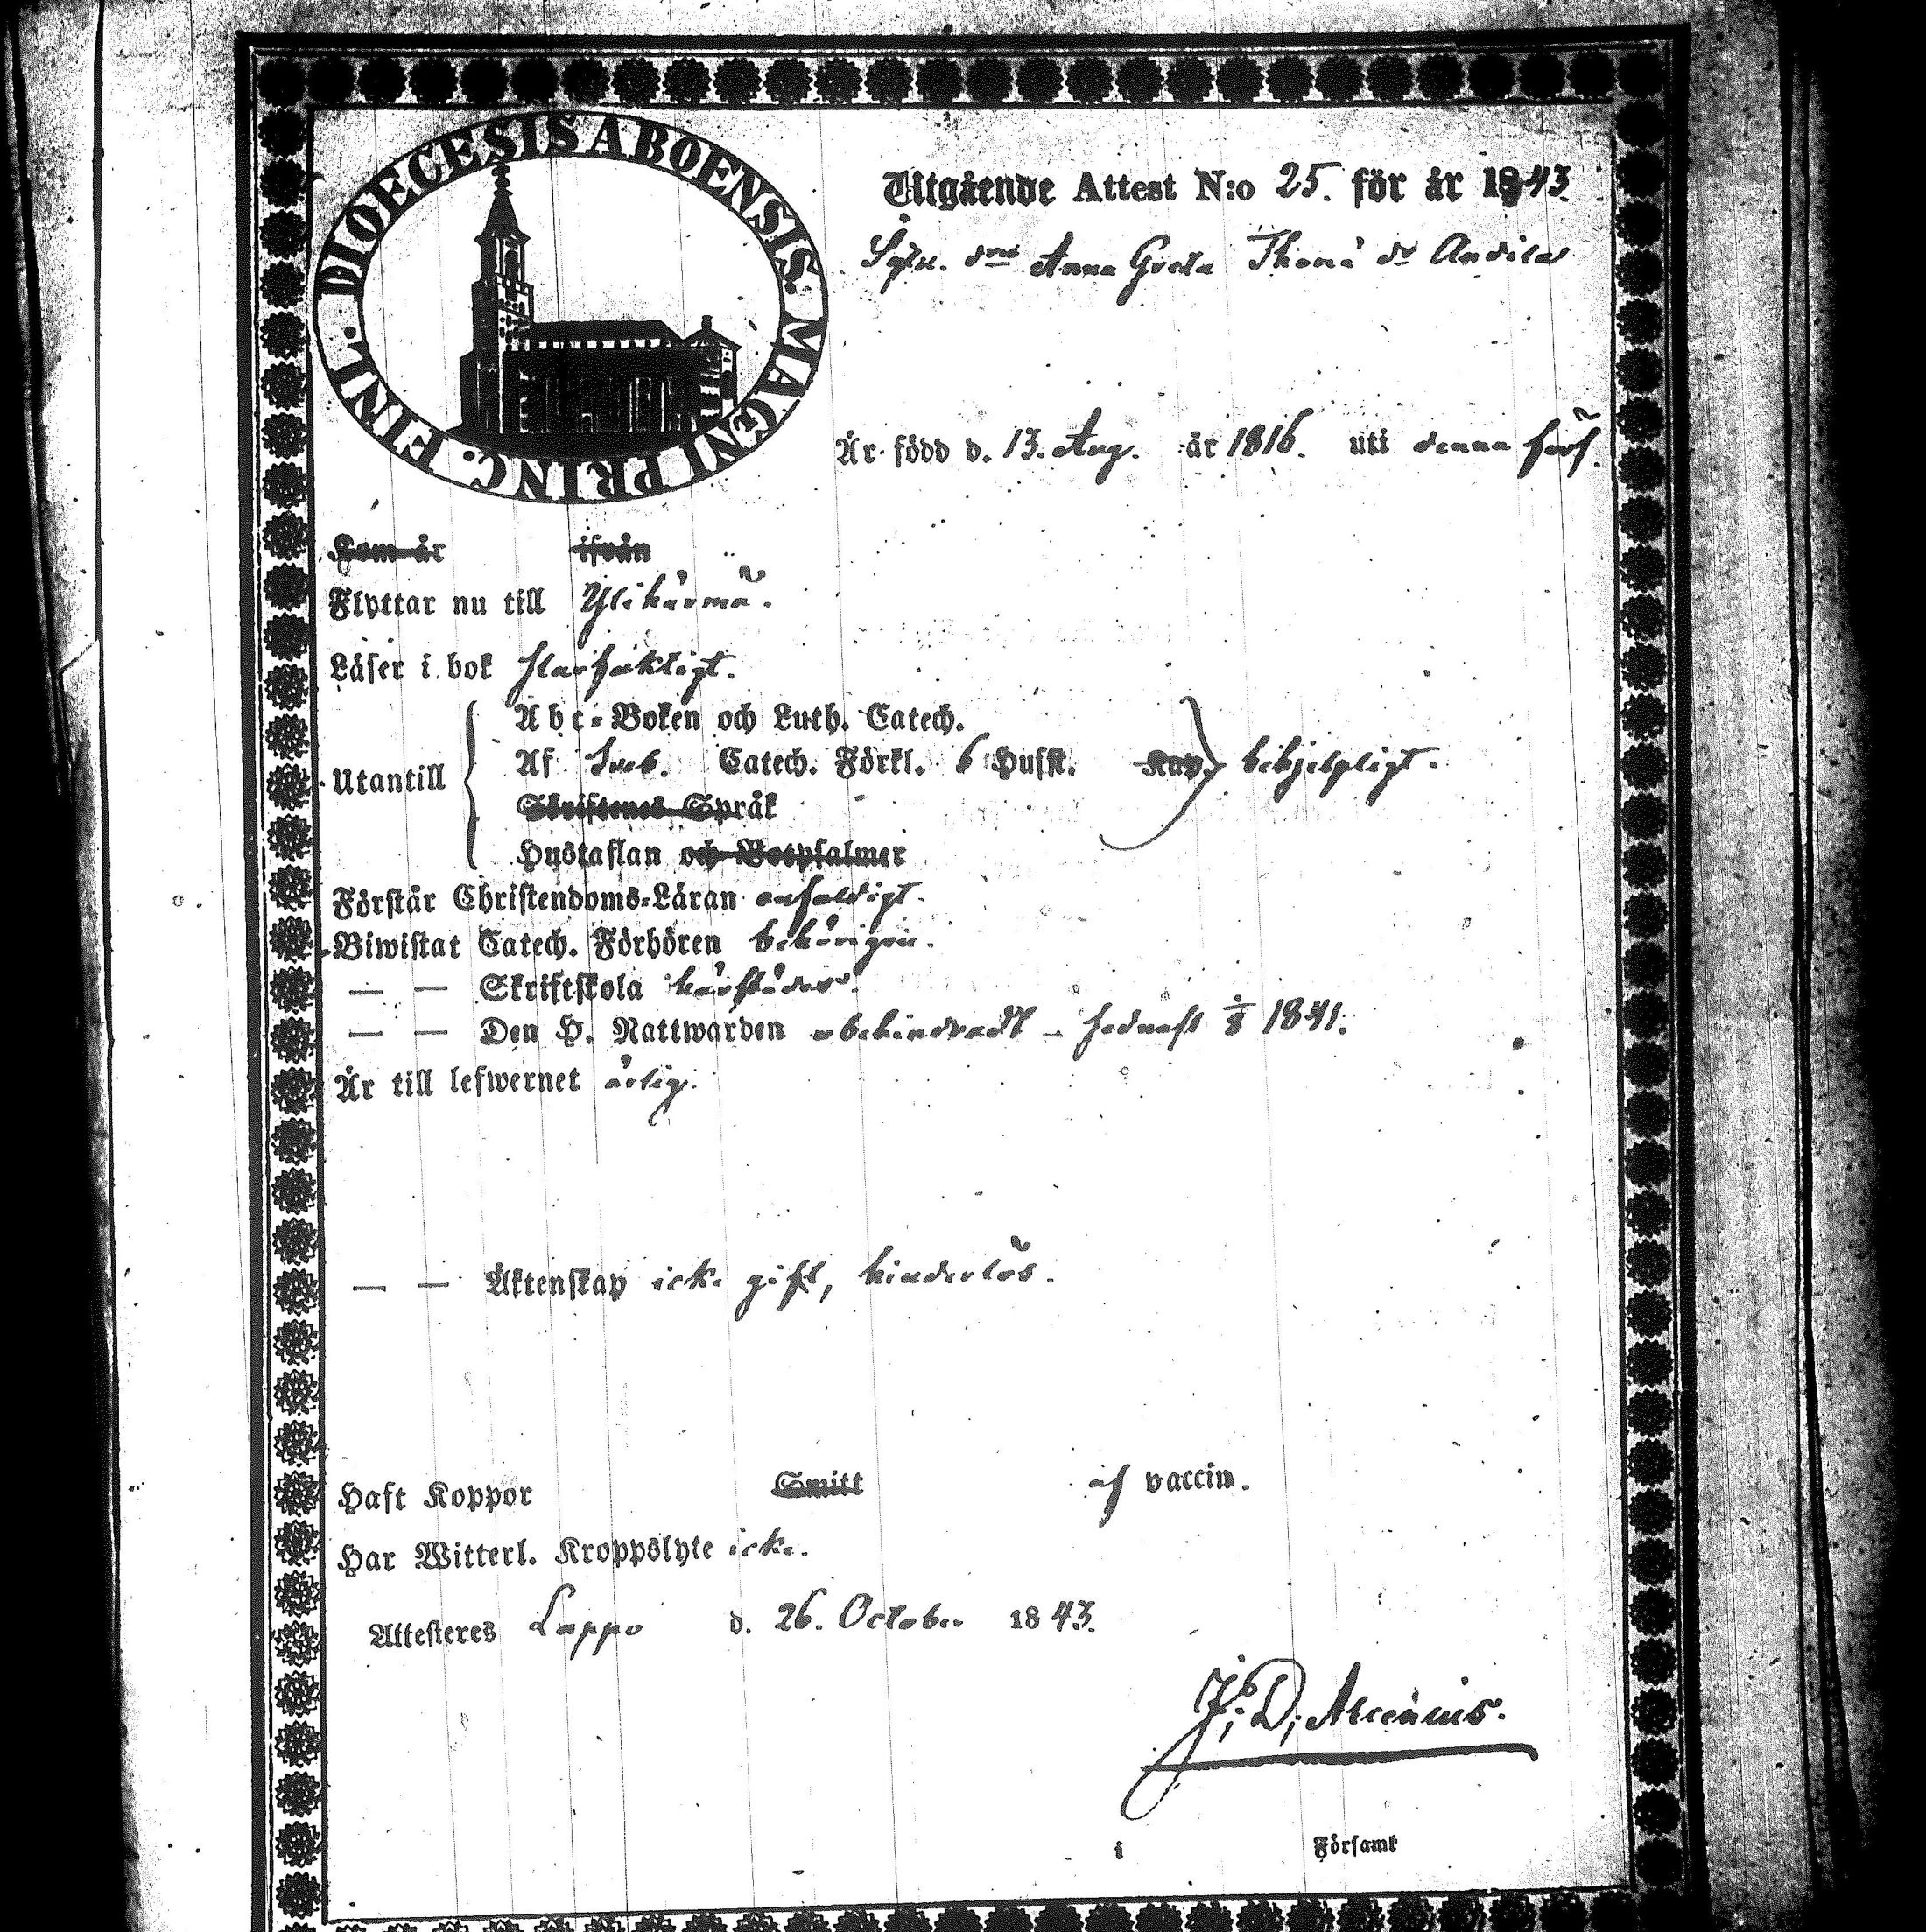 DIOECESIS ABOENSIS. MAGNI PRINC. FINL.
Utgående Attest N:o 25. för år 1843.
Anna Greta Thom: dr Andila
Är född d. 13. Aug. år 1816. uti denna förs.
Kom år ifrån
Flyttar nu till Ylihärmä.
Läser i bok slarfaktigt.
Abc-Boken och Luth. Catech.
Utantill Af Sveb. Catech. Förkl. 6 Hufst. Kap. behjelpligt.
Skriftenes Språk
Hustaflan och Botpsalmer
Förstår Christendoms-Läran enfaldigt.
Biwistat Catech. Förhören behörigen.
— — Skriftskola härstädes.
— — Den H. Nattwarden obehindradt – sednast 1/8 1841.
Är till lefwernet ärlig.
— — Äktenskap icke gift, hinderlös.
Haft Koppor Smitt af vaccin.
Har Witterl. Kroppslyte icke.
Attesteres Lappo d. 26. October 1843.
J. D. Alcenius.
i Församl